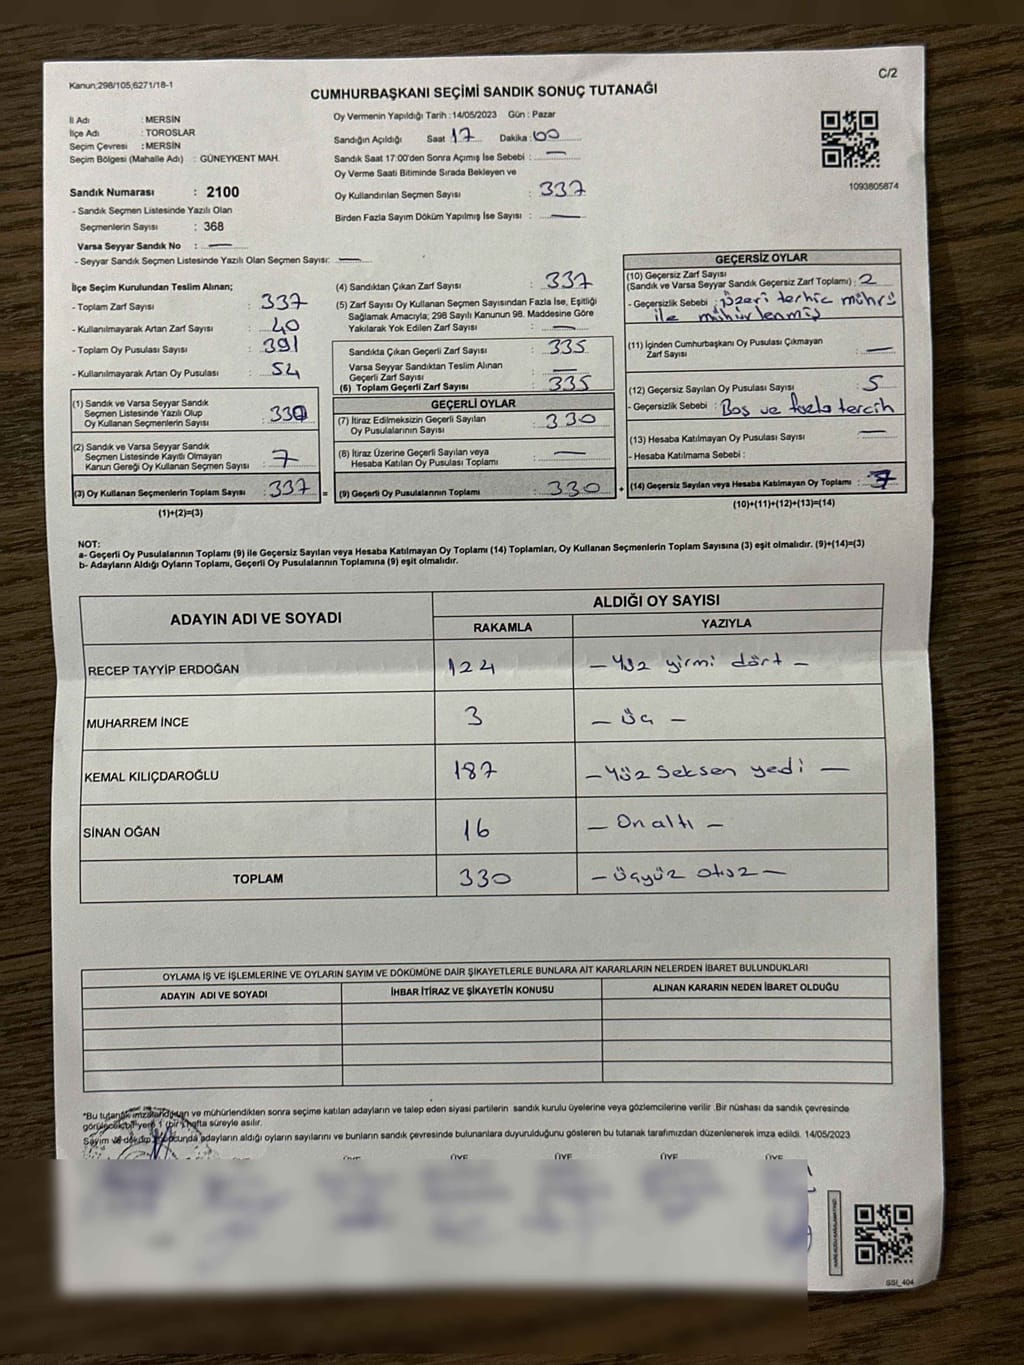 Kanun;298/105,6271/18-1
C/2
CUMHURBAŞKANI SEÇİMİ SANDIK SONUÇ TUTANAĞI
İl Adı : MERSİN
İlçe Adı : TOROSLAR
Seçim Çevresi : MERSİN
Seçim Bölgesi (Mahalle Adı) : GÜNEYKENT MAH.
Sandık Numarası : 2100
- Sandık Seçmen Listesinde Yazılı Olan
Seçmenlerin Sayısı : 368
Varsa Seyyar Sandık No : —
- Seyyar Sandık Seçmen Listesinde Yazılı Olan Seçmen Sayısı: —
Oy Vermenin Yapıldığı Tarih : 14/05/2023 Gün : Pazar
Sandığın Açıldığı Saat 17 Dakika : 00
Sandık Saat 17:00'den Sonra Açımış İse Sebebi : —
Oy Verme Saati Bitiminde Sırada Bekleyen ve
Oy Kullandırılan Seçmen Sayısı : 337
Birden Fazla Sayım Döküm Yapılmış İse Sayısı : —
1093805874
İlçe Seçim Kurulundan Teslim Alınan;
- Toplam Zarf Sayısı : 337
- Kullanılmayarak Artan Zarf Sayısı : 40
- Toplam Oy Pusulası Sayısı : 391
- Kullanılmayarak Artan Oy Pusulası : 54
(1) Sandık ve Varsa Seyyar Sandık
Seçmen Listesinde Yazılı Olup
Oy Kullanan Seçmenlerin Sayısı : 330
(2) Sandık ve Varsa Seyyar Sandık
Seçmen Listesinde Kayıtlı Olmayan
Kanun Gereği Oy Kullanan Seçmen Sayısı : 7
(3) Oy Kullanan Seçmenlerin Toplam Sayısı : 337 =
(1)+(2)=(3)
(4) Sandıktan Çıkan Zarf Sayısı : 337
(5) Zarf Sayısı Oy Kullanan Seçmen Sayısından Fazla İse, Eşitliği
Sağlamak Amacıyla; 298 Sayılı Kanunun 98. Maddesine Göre
Yakılarak Yok Edilen Zarf Sayısı : —
Sandıkta Çıkan Geçerli Zarf Sayısı : 335
Varsa Seyyar Sandıktan Teslim Alınan
Geçerli Zarf Sayısı : —
(6) Toplam Geçerli Zarf Sayısı : 335
GEÇERLİ OYLAR
(7) İtiraz Edilmeksizin Geçerli Sayılan
Oy Pusulalarının Sayısı : 330
(8) İtiraz Üzerine Geçerli Sayılan veya
Hesaba Katılan Oy Pusulası Toplamı : —
(9) Geçerli Oy Pusulalarının Toplamı : 330 +
GEÇERSİZ OYLAR
(10) Geçersiz Zarf Sayısı
(Sandık ve Varsa Seyyar Sandık Geçersiz Zarf Toplamı) : 2
- Geçersizlik Sebebi : üzeri tercic mührü
ile mühürlenmiş
(11) İçinden Cumhurbaşkanı Oy Pusulası Çıkmayan
Zarf Sayısı : —
(12) Geçersiz Sayılan Oy Pusulası Sayısı : 5
- Geçersizlik Sebebi : Boş ve fazla tercih
(13) Hesaba Katılmayan Oy Pusulası Sayısı : —
- Hesaba Katılmama Sebebi :
(14) Geçersiz Sayılan veya Hesaba Katılmayan Oy Toplamı : 7
(10)+(11)+(12)+(13)=(14)
NOT:
a- Geçerli Oy Pusulalarının Toplamı (9) ile Geçersiz Sayılan veya Hesaba Katılmayan Oy Toplamı (14) Toplamları, Oy Kullanan Seçmenlerin Toplam Sayısına (3) eşit olmalıdır. (9)+(14)=(3)
b- Adayların Aldığı Oyların Toplamı, Geçerli Oy Pusulalarının Toplamına (9) eşit olmalıdır.
ADAYIN ADI VE SOYADI ALDIĞI OY SAYISI
RAKAMLA YAZIYLA
RECEP TAYYİP ERDOĞAN 124 — Yüz yirmi dört —
MUHARREM İNCE 3 — üç —
KEMAL KILIÇDAROĞLU 187 — Yüz seksen yedi —
SİNAN OĞAN 16 — On altı —
TOPLAM 330 — üçyüz otuz —
OYLAMA İŞ VE İŞLEMLERİNE VE OYLARIN SAYIM VE DÖKÜMÜNE DAİR ŞİKAYETLERLE BUNLARA AİT KARARLARIN NELERDEN İBARET BULUNDUKLARI
ADAYIN ADI VE SOYADI İHBAR İTİRAZ VE ŞİKAYETİN KONUSU ALINAN KARARIN NEDEN İBARET OLDUĞU
*Bu tutanak imzalandıktan ve mühürlendikten sonra seçime katılan adayların ve talep eden siyasi partilerin sandık kurulu üyelerine veya gözlemcilerine verilir .Bir nüshası da sandık çevresinde
görülecek bir yere 1 (bir) hafta süreyle asılır.
Sayım ve döküm sonucunda adayların aldığı oyların sayılarını ve bunların sandık çevresinde bulunanlara duyurulduğunu gösteren bu tutanak tarafımızdan düzenlenerek imza edildi. 14/05/2023
ÜYE ÜYE ÜYE ÜYE ÜYE
SSI_404